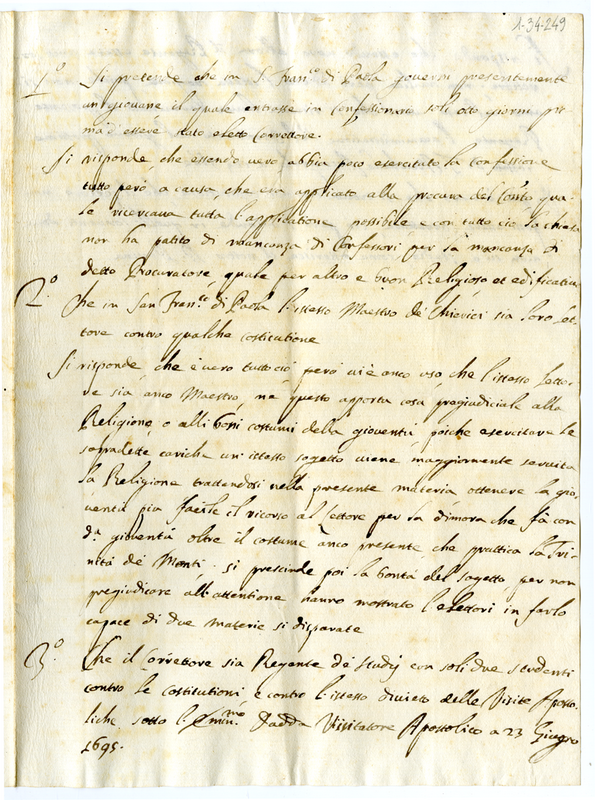 1-34-249
1.° Si pretende che in S. Fran.co di Paola governi presentemente
un giovane il quale entrasse in confessionario soli otto giorni pri-
ma d'essere stato eletto Correttore.
Si risponde, che essendo vero abbia poco esercitato la confessione
tutto però, a causa, che era applicato alla procura del Con.to qua-
le ricercava tutta l'applicatione possibile, e con tutto ciò la chiesa
non ha patito di mancanza di Confessori per la mancanza di
detto Procuratore, quale per altro è buon Religioso et edificativo
2.° Che in San Fran.co di Paola l'istesso Maestro de Chierici sia loro Let-
tore contro qualche costitutione
Si risponde, che è vero tutto ciò, però vi è anco uso, che l'istesso Letto-
re sia anco Maestro, ne questo apporta cosa pregiudiciale alla
Religione, o alli boni costumi della gioventù, poiche esercitare le
sopradette cariche un istesso sogetto viene maggiormente servita
la Religione trattandosi nella presente materia ottenere la gio-
ventù più facile il ricorso al lettore per la dimora che fà con
d.a gioventù oltre il costume anco presente che prattica la Tri-
nità de Monti. Si prescinde poi la bontà del sogetto, per non
pregiudicare all'attentione hanno mostrato l'elettori in farlo
capace di due materie si disparate
3.° Che il Correttore sia Regente de studij con soli due studenti
contro le costitutioni e contro l'istesso divieto delle Visite Aposto-
liche sotto l'Emin.mo Dadda Visitatore Apostolico a 23 Giugno
1695.